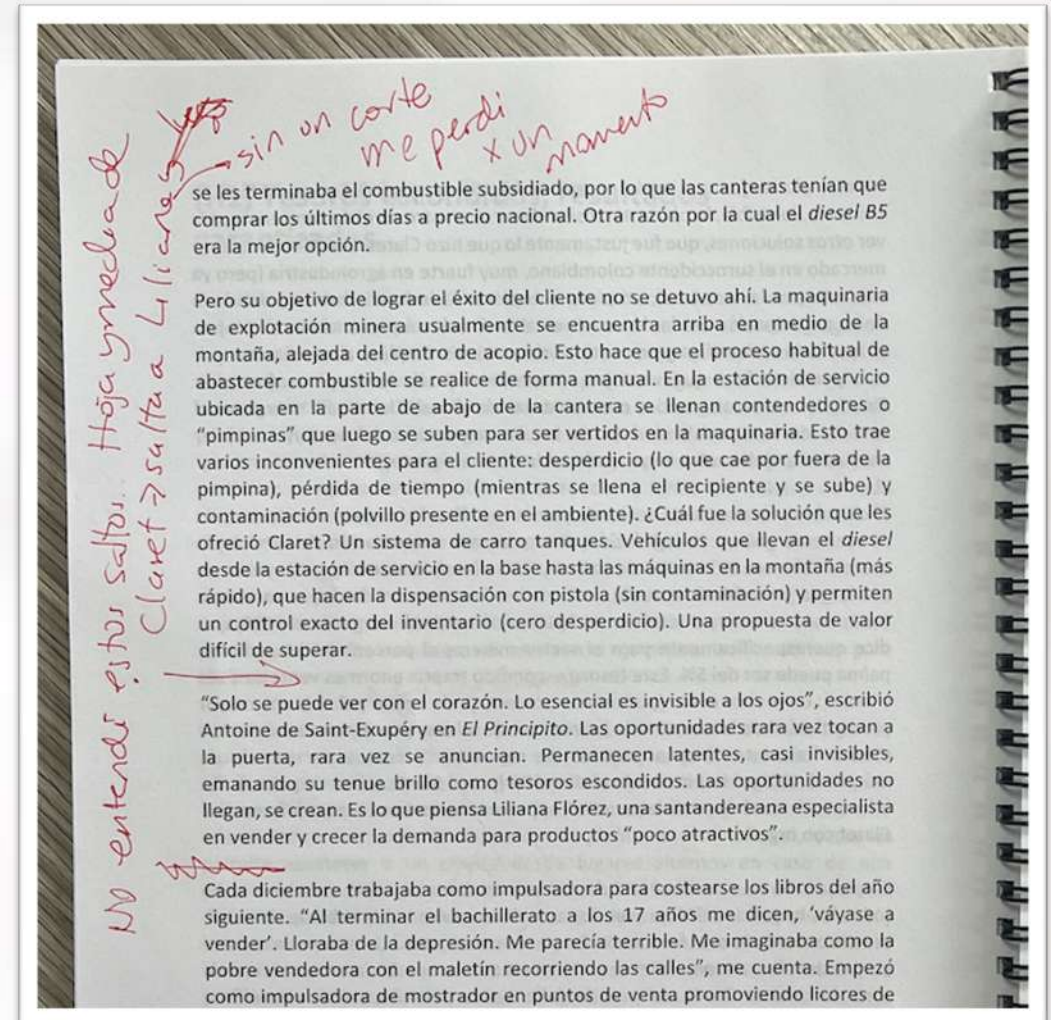 sin un corte
me perdi
x un
momento
No entendí estos saltos.. Hoja y media de
Claret → salta a Liliana
se les terminaba el combustible subsidiado, por lo que las canteras tenían que
comprar los últimos días a precio nacional. Otra razón por la cual el diesel B5
era la mejor opción.
Pero su objetivo de lograr el éxito del cliente no se detuvo ahí. La maquinaria
de explotación minera usualmente se encuentra arriba en medio de la
montaña, alejada del centro de acopio. Esto hace que el proceso habitual de
abastecer combustible se realice de forma manual. En la estación de servicio
ubicada en la parte de abajo de la cantera se llenan contendedores o
“pimpinas” que luego se suben para ser vertidos en la maquinaria. Esto trae
varios inconvenientes para el cliente: desperdicio (lo que cae por fuera de la
pimpina), pérdida de tiempo (mientras se llena el recipiente y se sube) y
contaminación (polvillo presente en el ambiente). ¿Cuál fue la solución que les
ofreció Claret? Un sistema de carro tanques. Vehículos que llevan el diesel
desde la estación de servicio en la base hasta las máquinas en la montaña (más
rápido), que hacen la dispensación con pistola (sin contaminación) y permiten
un control exacto del inventario (cero desperdicio). Una propuesta de valor
difícil de superar.
“Solo se puede ver con el corazón. Lo esencial es invisible a los ojos”, escribió
Antoine de Saint-Exupéry en El Principito. Las oportunidades rara vez tocan a
la puerta, rara vez se anuncian. Permanecen latentes, casi invisibles,
emanando su tenue brillo como tesoros escondidos. Las oportunidades no
llegan, se crean. Es lo que piensa Liliana Flórez, una santandereana especialista
en vender y crecer la demanda para productos “poco atractivos”.
Cada diciembre trabajaba como impulsadora para costearse los libros del año
siguiente. “Al terminar el bachillerato a los 17 años me dicen, ‘váyase a
vender’. Lloraba de la depresión. Me parecía terrible. Me imaginaba como la
pobre vendedora con el maletín recorriendo las calles”, me cuenta. Empezó
como impulsadora de mostrador en puntos de venta promoviendo licores de